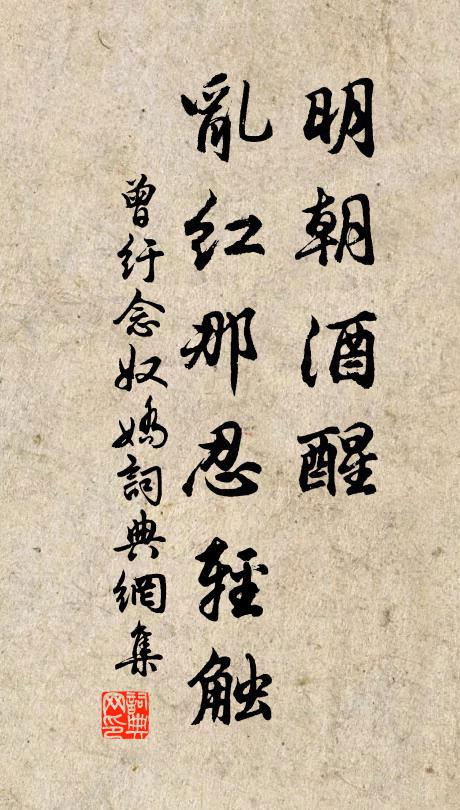 明朝酒醒
亂紅那忍輕触
曾纡念奴嬌詞典網集
詞典网印